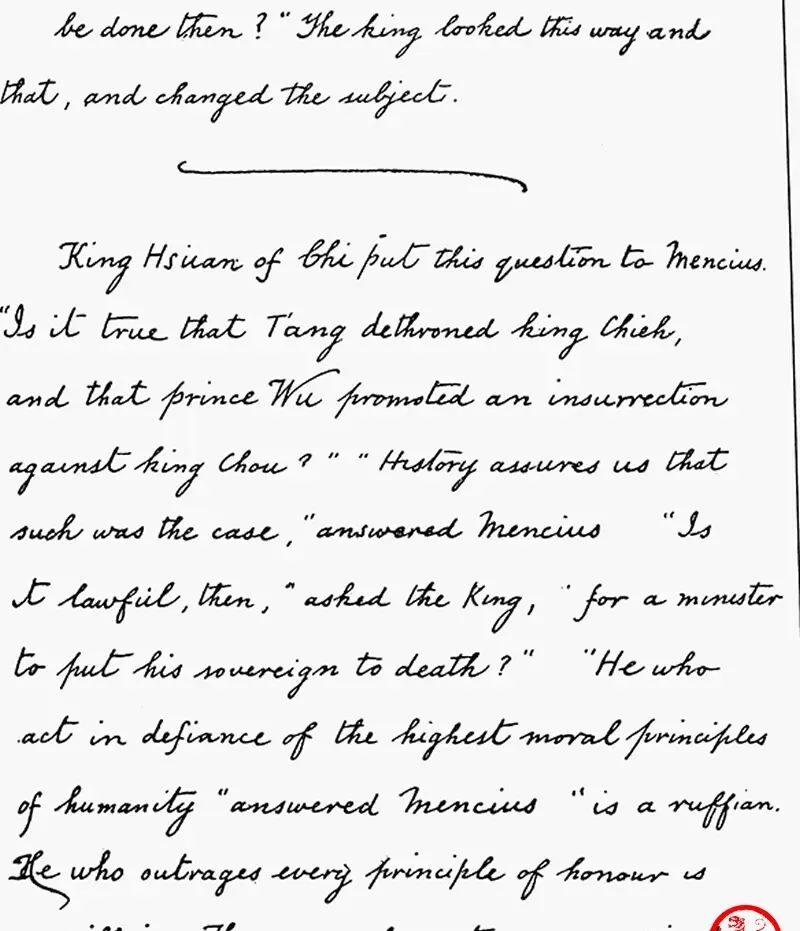 be done then?" The king looked this way and
that, and changed the subject.
King Hsüan of Chi put this question to Mencius.
"Is it true that T'ang dethroned king Chieh,
and that prince Wu promoted an insurrection
against king Chou?" "History assures us that
such was the case," answered Mencius "Is
it lawful, then," asked the King, "for a minister
to put his sovereign to death?" "He who
act in defiance of the highest moral principles
of humanity" answered Mencius "is a ruffian.
He who outrages every principle of honour is